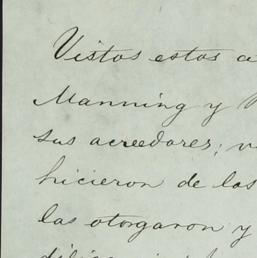 Vistos estos a
Manning y
sus acreedores; v
hicieron de las
las otorgaron y